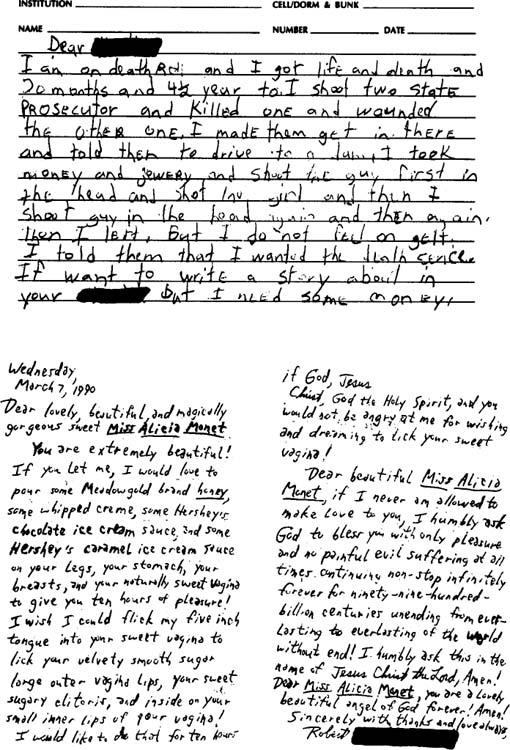 INSTITUTION CELL/DORM & BUNK
NAME NUMBER DATE
Dear
I am on death Row and I got life and death and
20 months and 42 year to. I shoot two State
PROSECUTOR and Killed one and wounded
the other one. I made them get in there
and told them to drive to a I took
money and jewery and shoot the guy first in
the head and shot girl and then I
shoot guy in the head again and then again.
then I left. But I do not feel on gelt.
I told them that I wanted the death
If want to write a story about in
your But I need some money.
Wednesday,
March 7, 1990
Dear lovely, beautiful, and magically
gorgeous sweet Miss Alicia Monet
You are extremely beautiful!
If you let me, I would love to
pour some Meadowgold brand honey,
some whipped creme, some Hershey's
chocolate ice cream sauce, and some
Hershey's caramel ice cream sauce
on your legs, your stomach, your
breasts, and your naturally sweet vagina
to give you ten hours of pleasure!
I wish I could flick my five inch
tongue into your sweet vagina to
lick your velvety smooth sugar
large outer vagina lips, your sweet
sugary clitoris, and inside on your
small inner lips of your vagina!
I would like to do that for ten hours
if God, Jesus
Christ, God the Holy Spirit, and you
would not be angry at me for wishing
and dreaming to lick your sweet
vagina!
Dear beautiful Miss Alicia
Monet, if I never am allowed to
make love to you, I humbly ask
God to bless you with only pleasure
and no painful evil suffering at all
times continuing non-stop infinitely
forever for ninety-nine-hundred-
billion centuries unending from ever-
lasting to everlasting of the world
without end! I humbly ask this in the
name of Jesus Christ the Lord, Amen!
Dear Miss Alicia Monet, you are a lovely
beautiful angel of God forever! Amen!
Sincerely with thanks and love always,
Robert